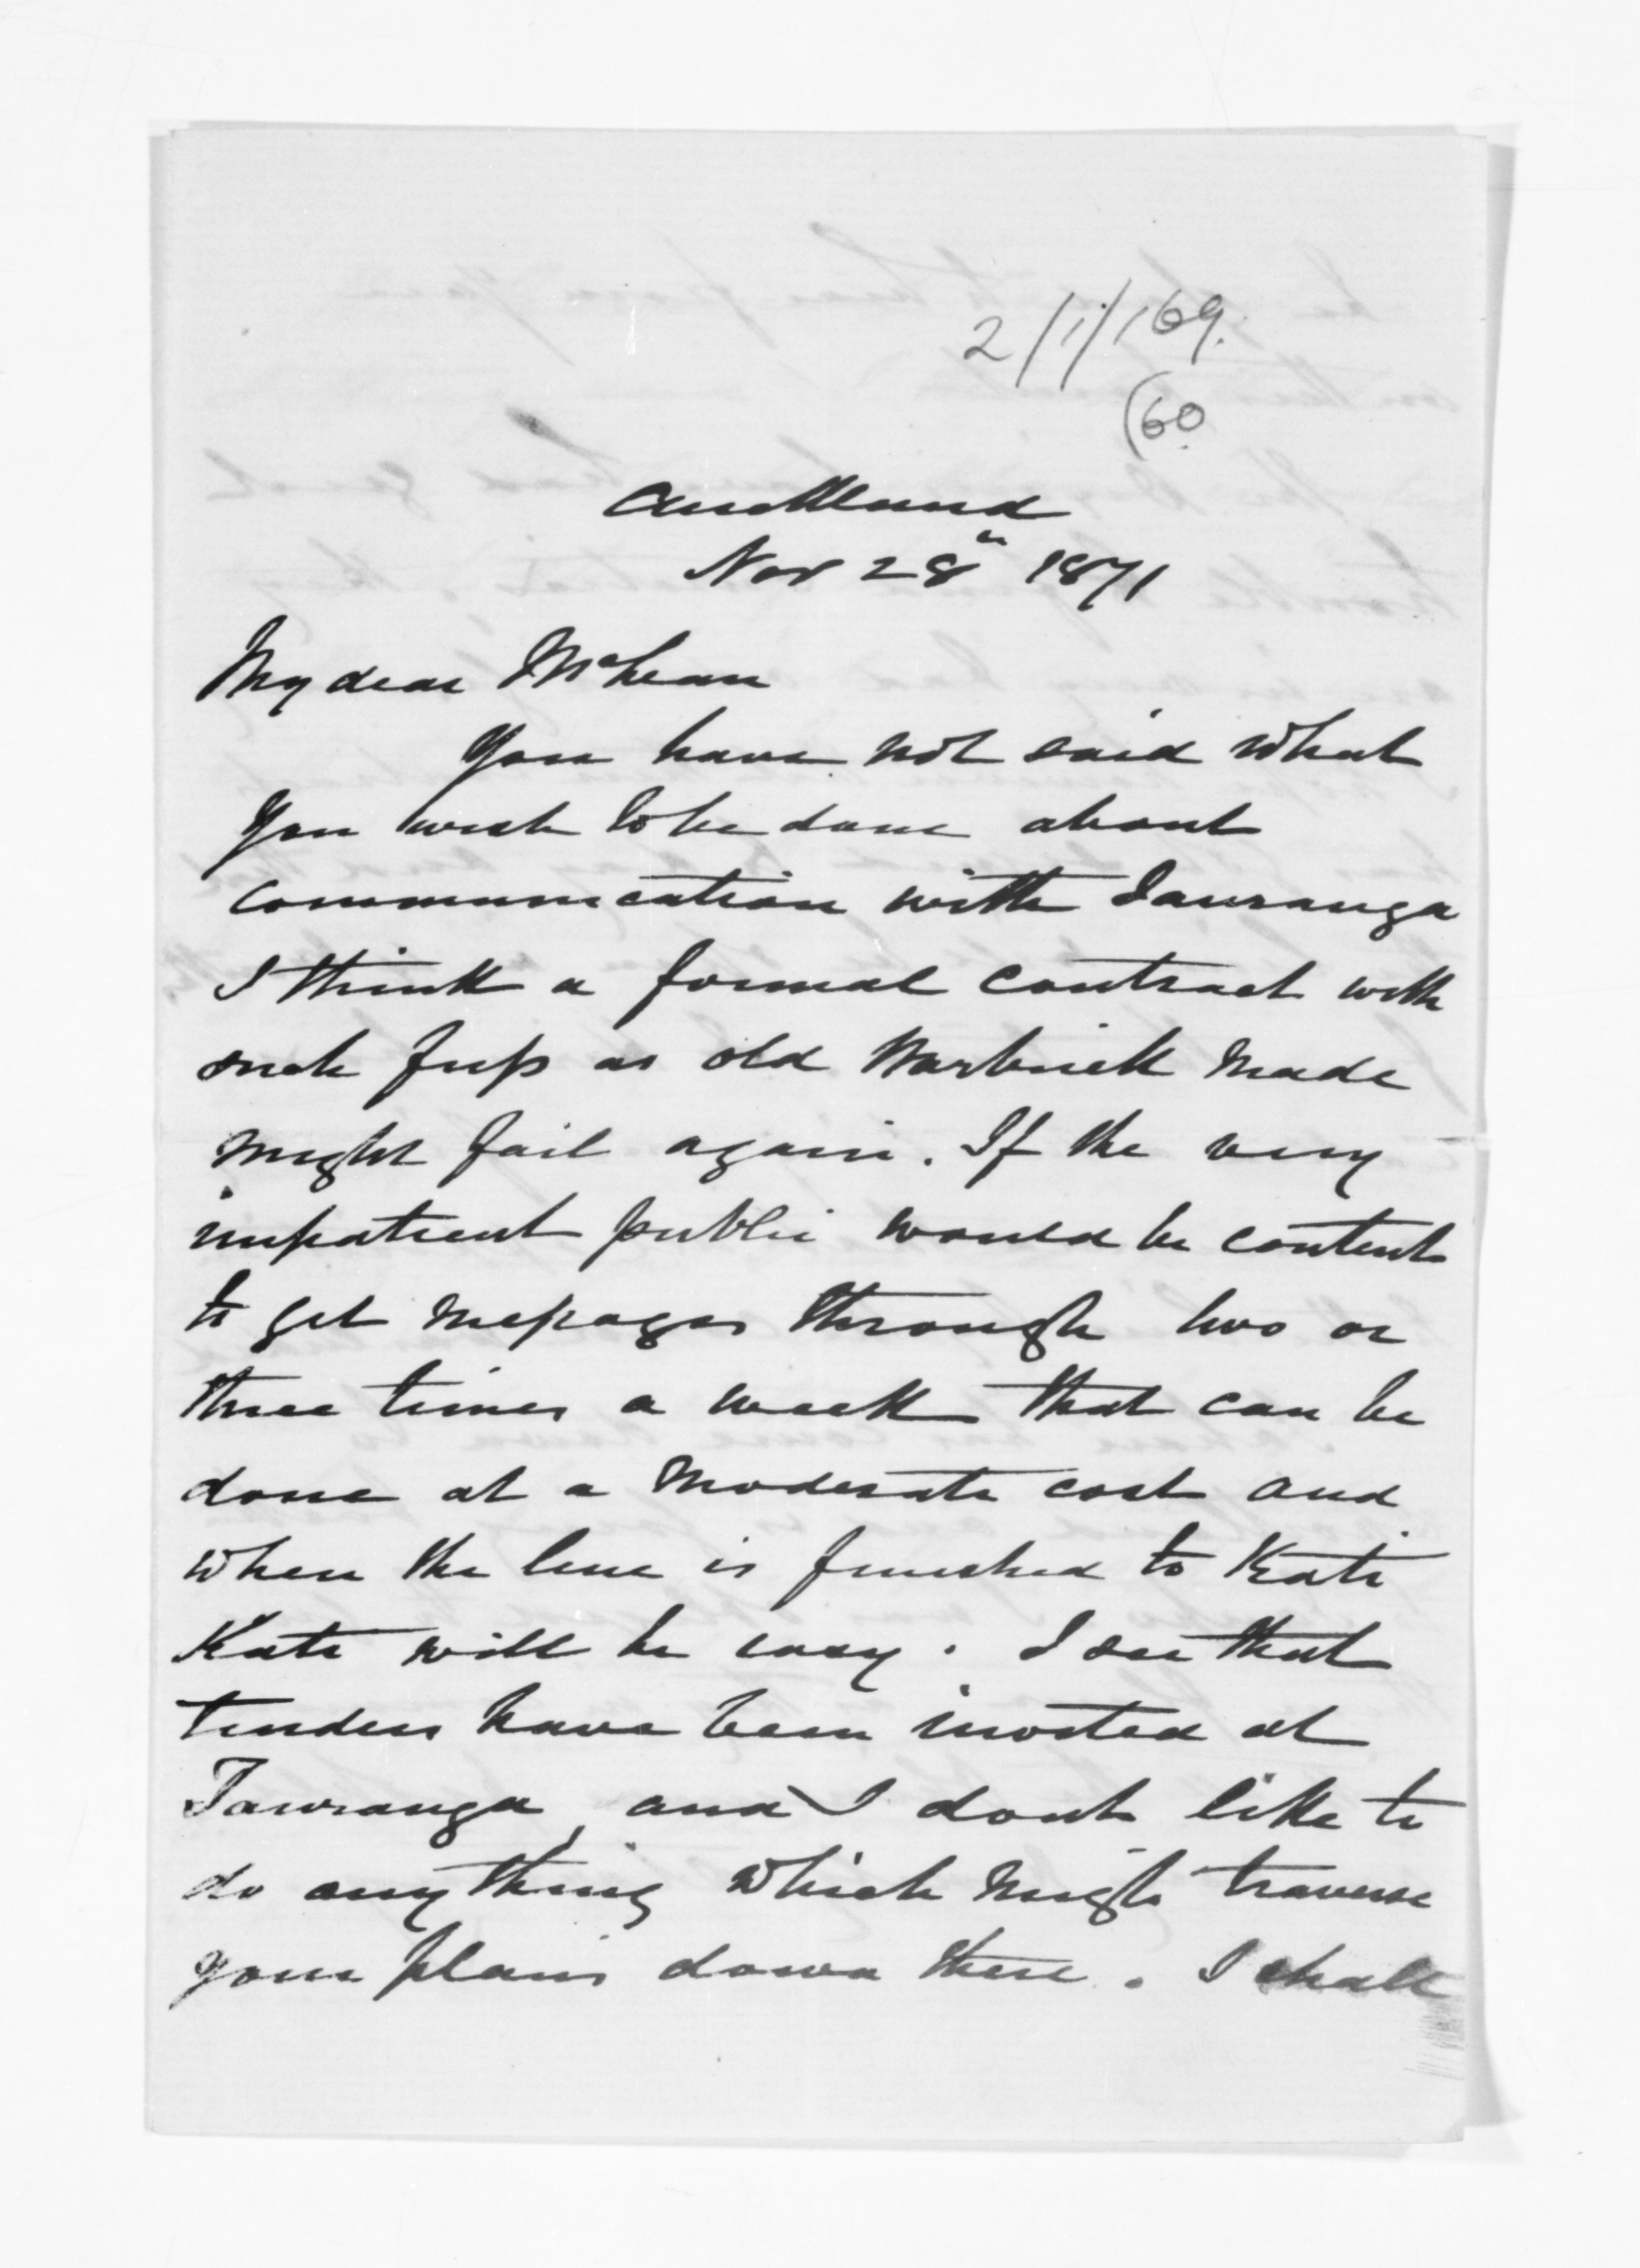 2/1/169.
(60
Auckland
Nov 28th 1871
My dear McLean
You have not said what
you wish to be done about
communication with Tauranga
I think a formal contract with
such fuss as old Warbrick made
might fail again. If the very
impatient public would be content
to get messages through two or
three times a week that can be
done at a moderate cost and
when the line is finished to Kati
Kati will be easy. I see that
tenders have been invited at
Tauranga, and I dont like to
do anything which might traverse
your plans down there. I shall